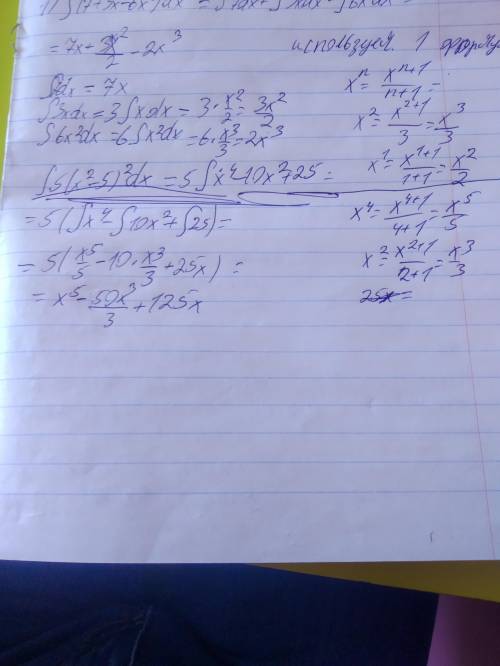 1) ∫(7+3x-6x²)dx = ∫7dx + ∫3xdx - ∫6x²dx =
= 7x + 3x²/2 - 2x³
используем 1 формулу
∫7dx = 7x
xⁿ = xⁿ⁺¹/n+1 =
∫3xdx = 3∫xdx = 3·x²/2 = 3x²/2
x² = x²⁺¹/3 = x³/3
∫6x²dx = 6∫x²dx = 6·x³/3 = 2x³
x¹ = x¹⁺¹/1+1 = x²/2
∫5(x²-5)²dx = 5∫x⁴-10x²+25 =
= 5(∫x⁴-∫10x²+∫25) =
x⁴ = x⁴⁺¹/4+1 = x⁵/5
= 5(x⁵/5 - 10·x³/3 + 25x) =
x² = x²⁺¹/2+1 = x³/3
= x⁵ - 50x³/3 + 125x
25x =